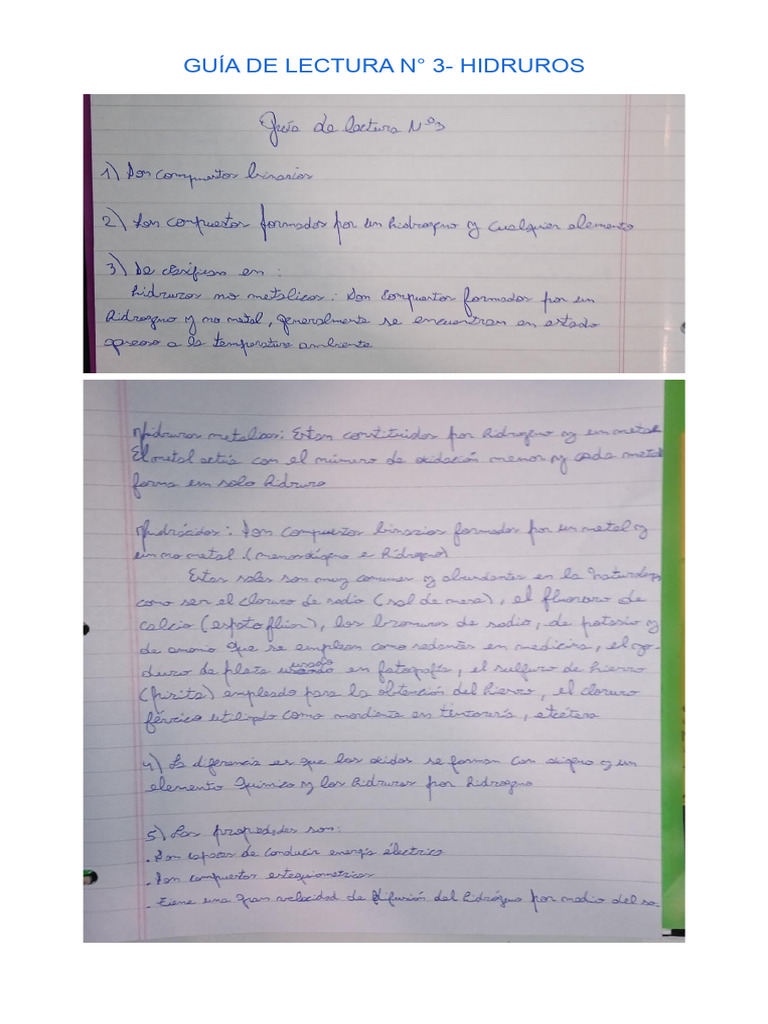 GUÍA DE LECTURA N° 3- HIDRUROS
Guía de lectura N°3
1) Son compuestos binarios
2) Son compuestos formados por un hidrogeno y cualquier elemento
3) Se clasifican en :
hidruros no metalicos : Son compuestos formados por un
hidrogeno y no metal, generalmente se encuentran en estado
gaseoso a la temperatura ambiente
hidruros metalicos : Estan constituidos por hidrogeno y un metal
El metal actúa con el número de oxidación menor y cada metal
forma un solo hidruro
hidrácidos : Son compuestos binarios formados por un metal y
un no metal . (menos oxígeno e hidrogeno)
Estas sales son muy comunes y abundantes en la naturaleza
como ser el cloruro de sodio (sal de mesa), el fluoruro de
calcio (espato fluor), los bromuros de sodio, de potasio y
de amonio que se emplean como sedantes en medicina, el yo-
duro de plata usado en fotografía, el sulfuro de hierro
(pirita) empleado para la obtención del hierro, el cloruro
férrico utilizado como mordiente en tintorería, etcétera
4) La diferencia es que los oxidos se forman con oxigeno y un
elemento químico y los hidruros por hidrogeno
5) Las propiedades son:
. Son capaces de conducir energía eléctrica
. Son compuestos estequiometricos
. tiene una gran velocidad de difusión del hidrógeno por medio del so-